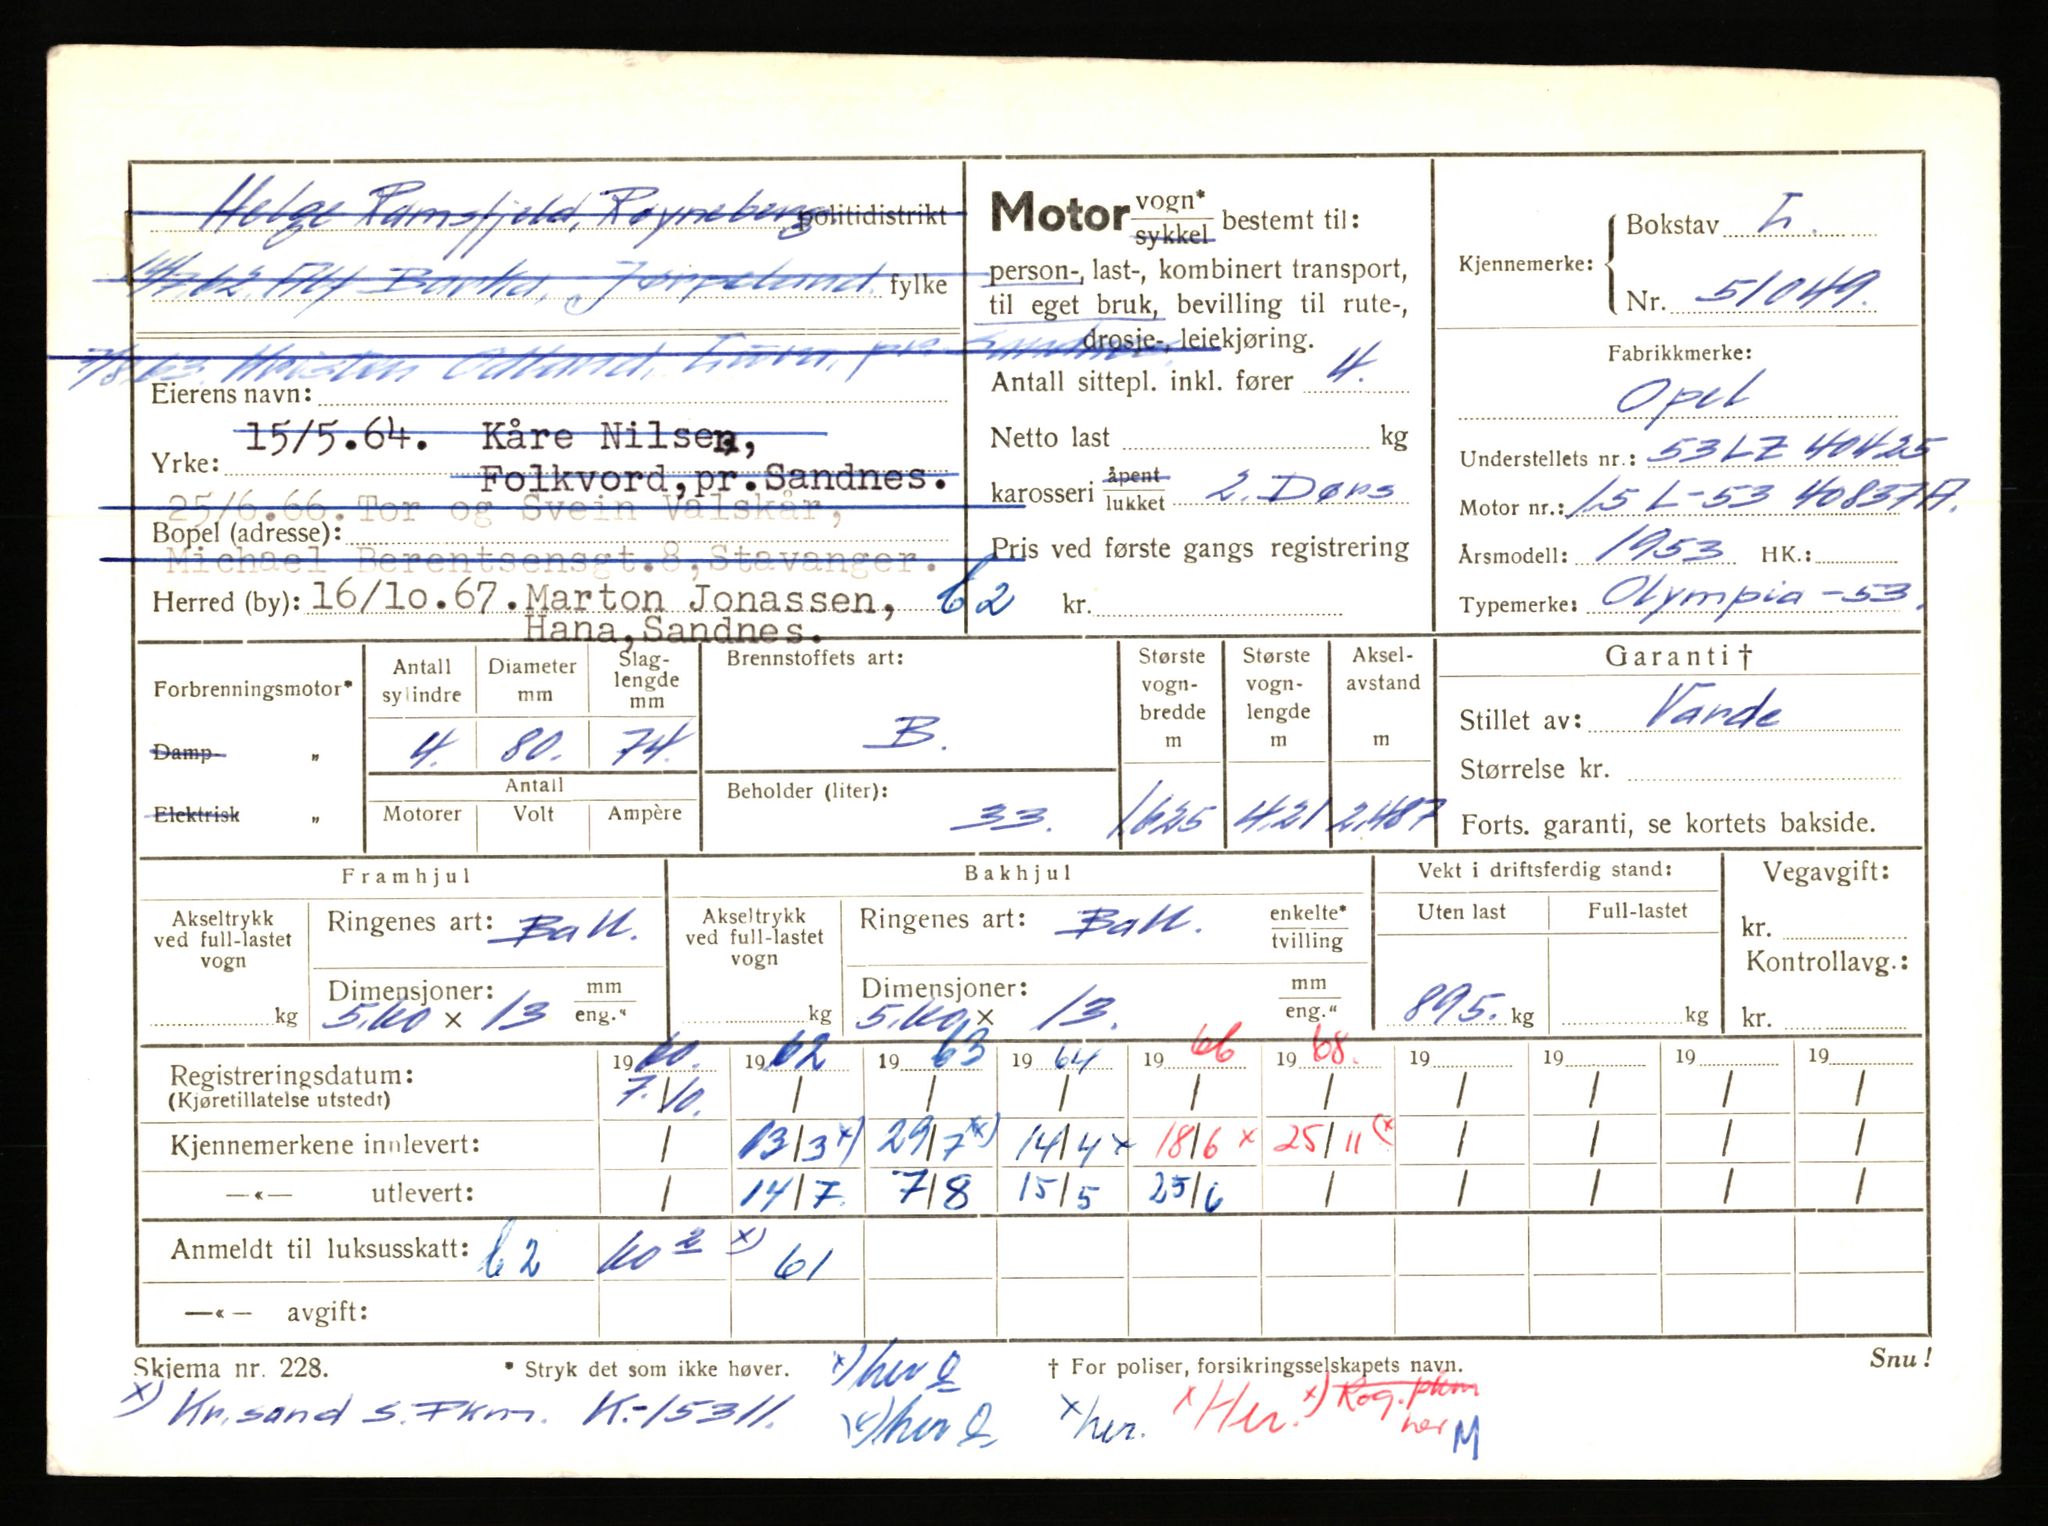 Helge Ramsfjeld, Røyneberg politidistrikt
14/7.62. Alf Barka, Jørpeland. fylke
7/8.63. Odland, Lura, pr. Sandnes.
Eierens navn:
15/5.64. Kåre Nilsen,
Yrke:
Folkvord, pr. Sandnes.
25/6.66. Tor og Svein Valskår,
Bopel (adresse):
Michael Berentsensgt.8, Stavanger.
Herred (by): 16/10.67. Marton Jonassen, 62
Hana, Sandnes.
Motor vogn* sykkel bestemt til:
person-, last-, kombinert transport,
til eget bruk, bevilling til rute-,
drosje-, leiekjøring.
Antall sittepl. inkl. fører 4.
Netto last kg
karosseri åpent lukket 2. Dørs
Pris ved første gangs registrering
kr.
Kjennemerke: Bokstav L.
Nr. 51049.
Fabrikkmerke:
Opel
Understellets nr.: 53LZ 40425
Motor nr.: 1.5 L-53 40837A.
Årsmodell: 1953 HK.:
Typemerke: Olympia-53.
Forbrenningsmotor*
Damp- „
Elektrisk „
Antall sylindre
Diameter mm
Slag-lengde mm
4. 80. 74.
Antall
Motorer Volt Ampère
Brennstoffets art:
B.
Beholder (liter):
33.
Største vogn-bredde m
1.625
Største vogn-lengde m
4.21
Aksel-avstand m
2.487
Garanti †
Stillet av: Varde
Størrelse kr.
Forts. garanti, se kortets bakside.
Framhjul
Akseltrykk ved full-lastet vogn
kg
Ringenes art: Ball.
Dimensjoner: mm eng."
5.60 x 13
Bakhjul
Akseltrykk ved full-lastet vogn
kg
Ringenes art: Ball. enkelte* tvilling
Dimensjoner: mm eng."
5.60 x 13.
Vekt i driftsferdig stand:
Uten last Full-lastet
895. kg kg
Vegavgift:
kr.
Kontrollavg.:
kr.
1960. 1962 1963 1964 1966 1968. 19 19 19 19
Registreringsdatum: 7./10. / / / / / / / / /
(Kjøretillatelse utstedt)
Kjennemerkene innlevert: / 13/3 x) 29/7 xx) 14/4 x 18/6 x 25/11 (x / / / /
—«— utlevert: / 14/7. 7/8 15/5 25/6 / / / / /
Anmeldt til luksusskatt: 62 60 2 x) 61
—«— avgift:
Skjema nr. 228. * Stryk det som ikke høver. x) her † For poliser, forsikringsselskapets navn. Snu!
x) Kr.sand S. Pkm. K-15311. her x her. x Her. x) Rog. pkm
her M